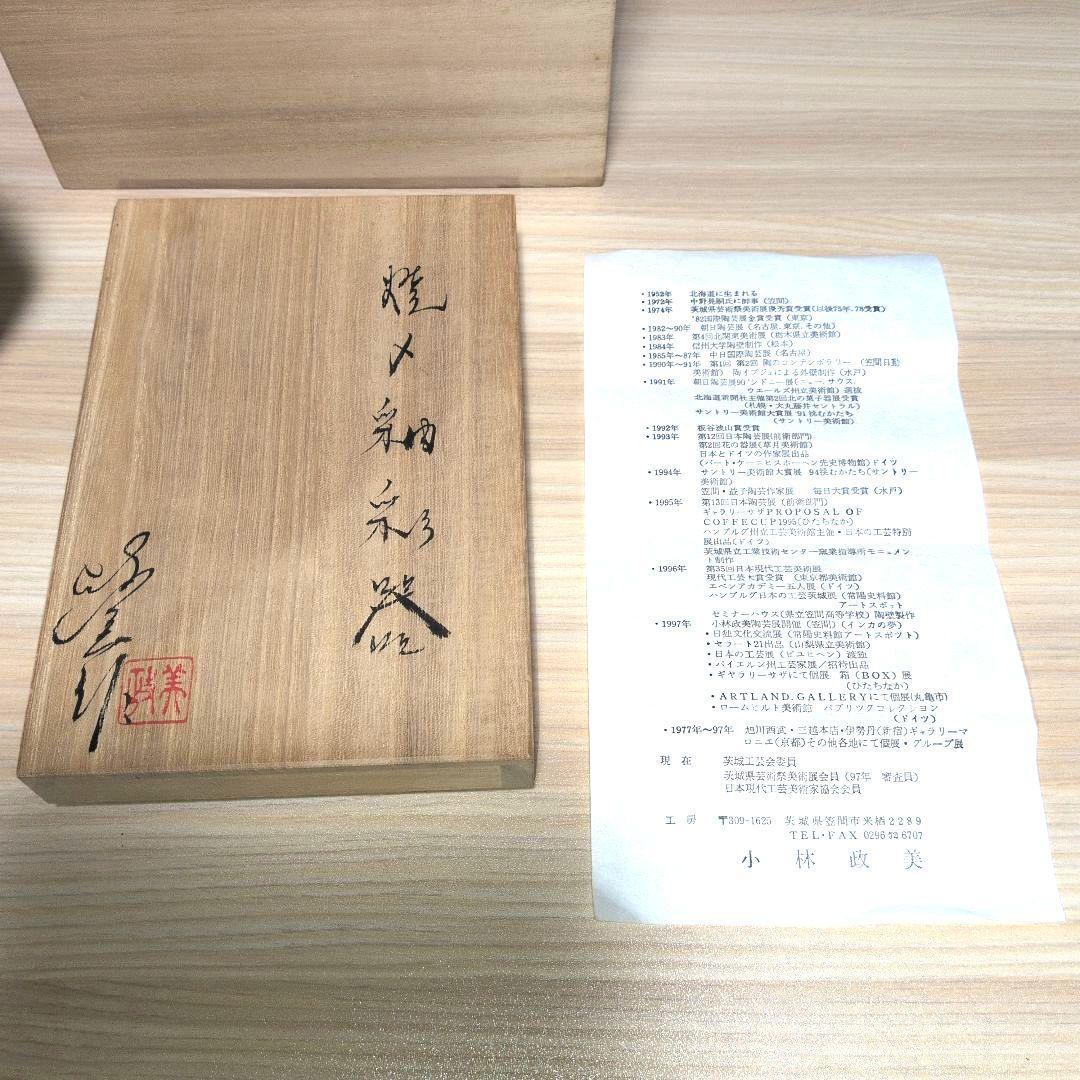 焼〆釉彩器
政美
・1952年 北海道に生まれる
・1972年 中野晃嗣氏に師事(笠間)
・1974年 茨城県芸術祭美術展優秀賞受賞(以後75年.78受賞)
'82国際陶芸展金賞受賞(東京)
・1982〜90年 朝日陶芸展(名古屋.東京.その他)
・1983年 第4回北関東美術展(栃木県立美術館)
・1984年 信州大学陶壁制作(松本)
・1985年〜87年 中日国際陶芸展(名古屋)
・1990年〜91年 第1回 第2回 陶のコンテンポラリー (笠間日動
美術館) 陶イブジェによる外壁制作(水戸)
・1991年 朝日陶芸展90'シドニー展(ニュー.サウス.
ウエールズ州立美術館) 選抜
北海道新聞社主催第2回北の菓子器展受賞
(札幌・大丸藤井セントラル)
サントリー美術館大賞展'91挑むかたち
(サントリー美術館)
・1992年 板谷波山賞受賞
・1993年 第12回日本陶芸展(前衛部門)
第2回花の器展(草月美術館)
日本とドイツの作家展出品
(バート・ケーニヒスホーヘン先史博物館)ドイツ
・1994年 サントリー美術館大賞展 94挑むかたち(サントリー
美術館)
笠間・益子陶芸作家展 毎日大賞受賞(水戸)
・1995年 第13回日本陶芸展(前衛部門)
ギャラリーサザPROPOSAL OF
COFFECUP1995(ひたちなか)
ハンブルグ州立工芸美術館主催・日本の工芸特別
展出品(ドイツ)
茨城県立工業技術センター窯業指導所モニュメン
ト制作
・1996年 第35回日本現代工芸美術展
現代工芸大賞受賞 (東京都美術館)
エベンアカデミー五人展(ドイツ)
ハンブルグ日本の工芸茨城展(常陽史料館)
アートスポット
セミナーハウス(県立笠間高等学校)陶壁製作
・1997年 小林政美陶芸展開催(笠間)(インカの夢)
・日独文化交流展(常陽史料館アートスポット)
・セラート21出品(山梨県立美術館)
・日本の工芸展(ビユヒヘン)渡独
・バイエルン州工芸家展/招待出品
・ギャラリーサザにて個展 箱(BOX)展
(ひたちなか)
・ARTLAND.GALLERYにて個展(丸亀市)
・ロームヒルト美術館 パブリックコレクション
(ドイツ)
・1977年〜97年 旭川西武・三越本店・伊勢丹(新宿)ギャラリーマ
ロニエ(京都)その他各地にて個展・グループ展
現在 茨城工芸会委員
茨城県芸術祭美術展会員(97年 審査員)
日本現代工芸美術家協会会員
工房 〒309-1625 茨城県笠間市来栖2289
TEL・FAX 0296 72 6707
小林政美